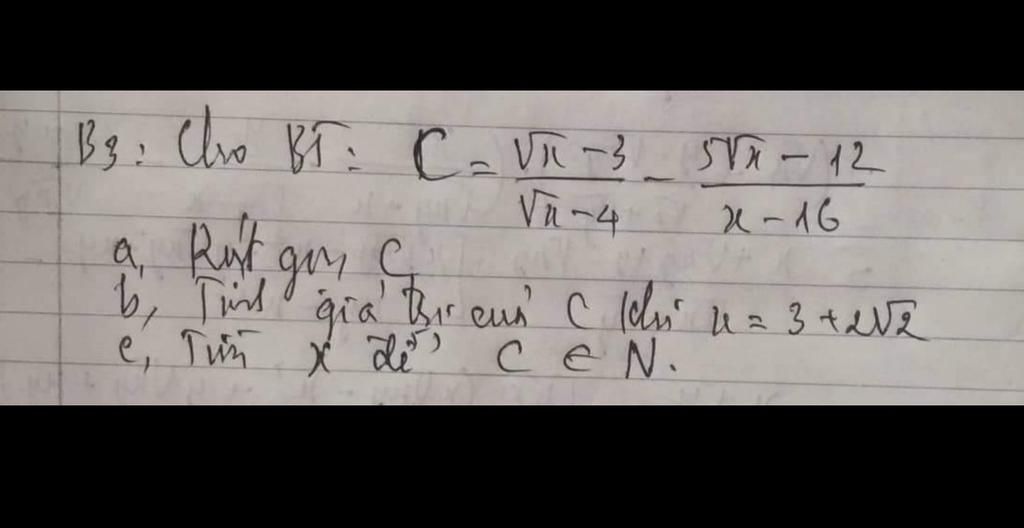 B3: Cho BT: C = \frac{\sqrt{x} - 3}{\sqrt{x} - 4} - \frac{5\sqrt{x} - 12}{x - 16}
a, Rút gọn C
b, Tính giá trị của C khi x = 3 + 2\sqrt{2}
c, Tìm x để C ∈ N.